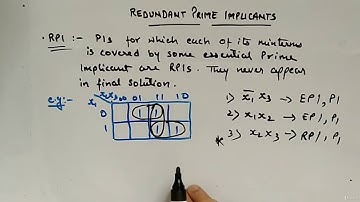 REDUNDANT PRIME IMPLICANTS
• RPI :- PIs for which each of its minterms
is covered by some essential Prime
Implicant are RPIs. They never appear
in final solution.
e.g:-
x₁ x₂x₃ 00 01 11 10
0 1 1
1 1 1
1) x̄₁ x₃ → EPI, PI
2) x₁x₂ → EPI, PI
* 3) x₂x₃ → RPI, PI